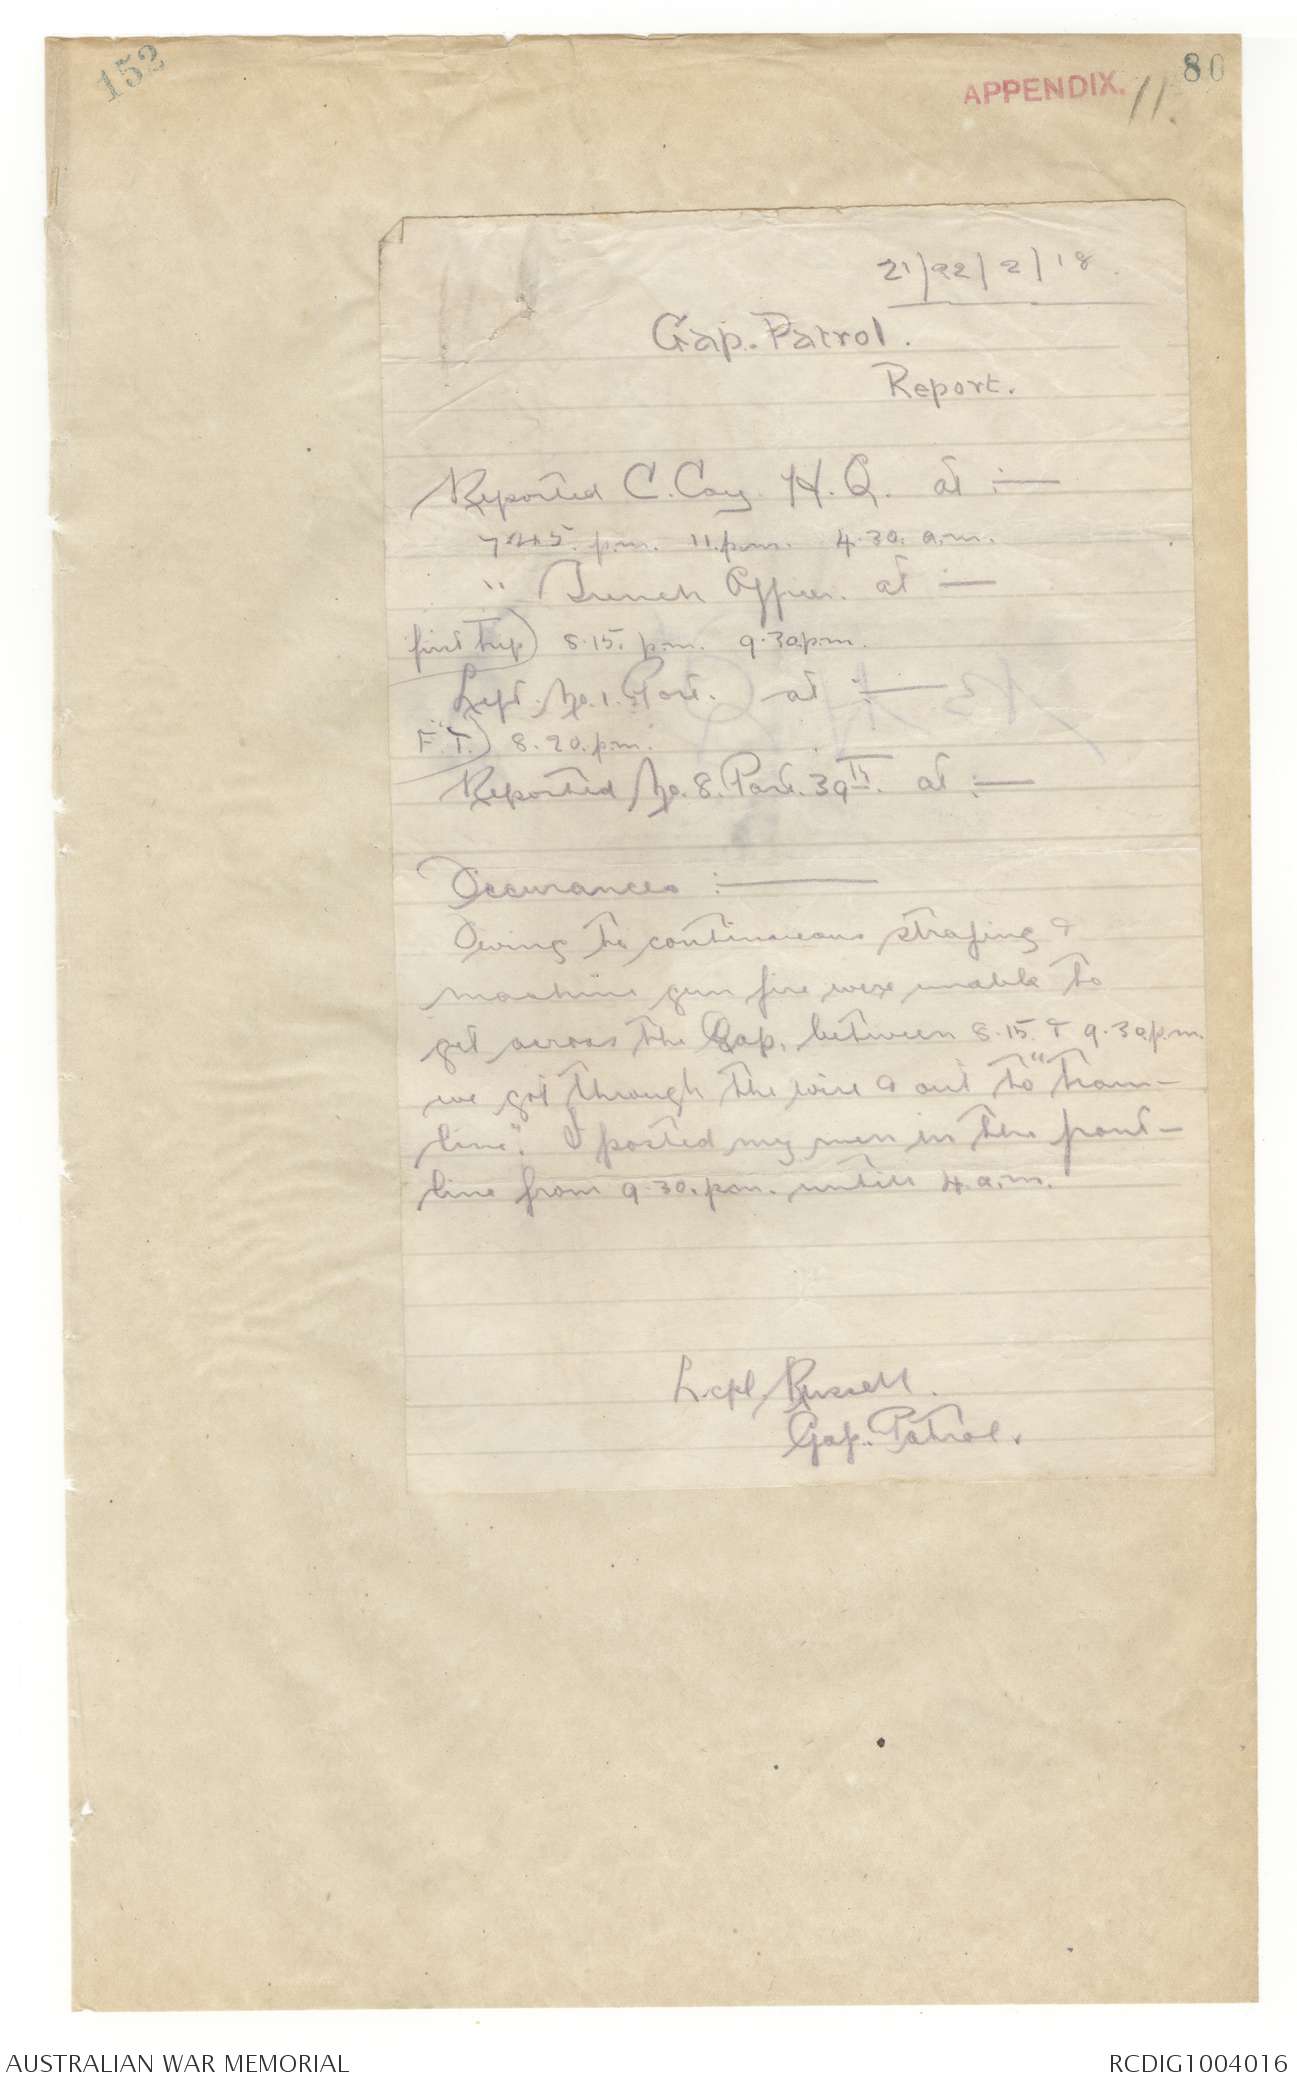 152
80
APPENDIX. 11.
21/22/2/18
Gap. Patrol.
Report.
Reported C. Coy. H. Q. at :—
7.45. p.m. 11.p.m. 4.30. a.m.
" Trench Officer. at :—
first trip) 8.15. p.m. 9.30p.m.
Left. No. 1. Post. at :—
F. T.) 8.20. p.m.
Reported No. 8. Post. 39th. at :—
Occurances :—
Owing to continueous strafing &
machine gun fire were unable to
get across the Gap. between 8.15. & 9.30p.m.
we got through the wire & out to "tram-
line". I posted my men in the front-
line from 9.30. p.m. untill 4. a.m.
L.cpl. Russell.
Gap. Patrol.
AUSTRALIAN WAR MEMORIAL
RCDIG1004016